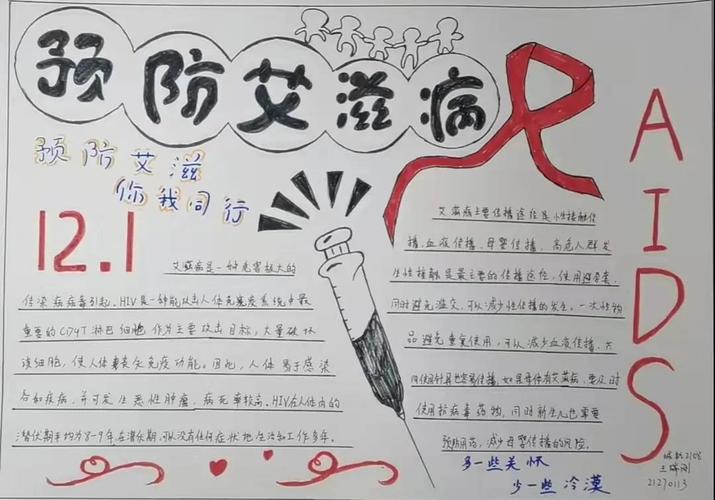 预防艾滋病
预防艾滋
你我同行
12.1
艾滋病是一种危害极大的
传染病病毒引起.HIV是一种能攻击人体免疫系统中最
重要的CD4T淋巴细胞作为主要攻击目标,大量破坏
该细胞,使人体丧失免疫功能。因此,人体易于感染
各种疾病,并可发生恶性肿瘤,病死率较高.HIV在人体内的
潜伏期平均为8-9年.在潜伏期,可以没有任何症状地生活和工作多年。
艾滋病主要传播途径是性接触传
播、血液传播、母婴传播,高危人群发
生性接触是最主要的传播途径,使用避孕套
同时避免滥交,可以减少性传播的发生,一次性物
品避免重复使用,可以减少血液传播,共
同使用针具也容易传播,如果母体有艾滋病,要及时
使用抗病毒药物,同时新生儿也需要
预防用药,减少母婴传播的风险.
多一些关怀
少一些冷漠
AIDS
2108
王
21270113